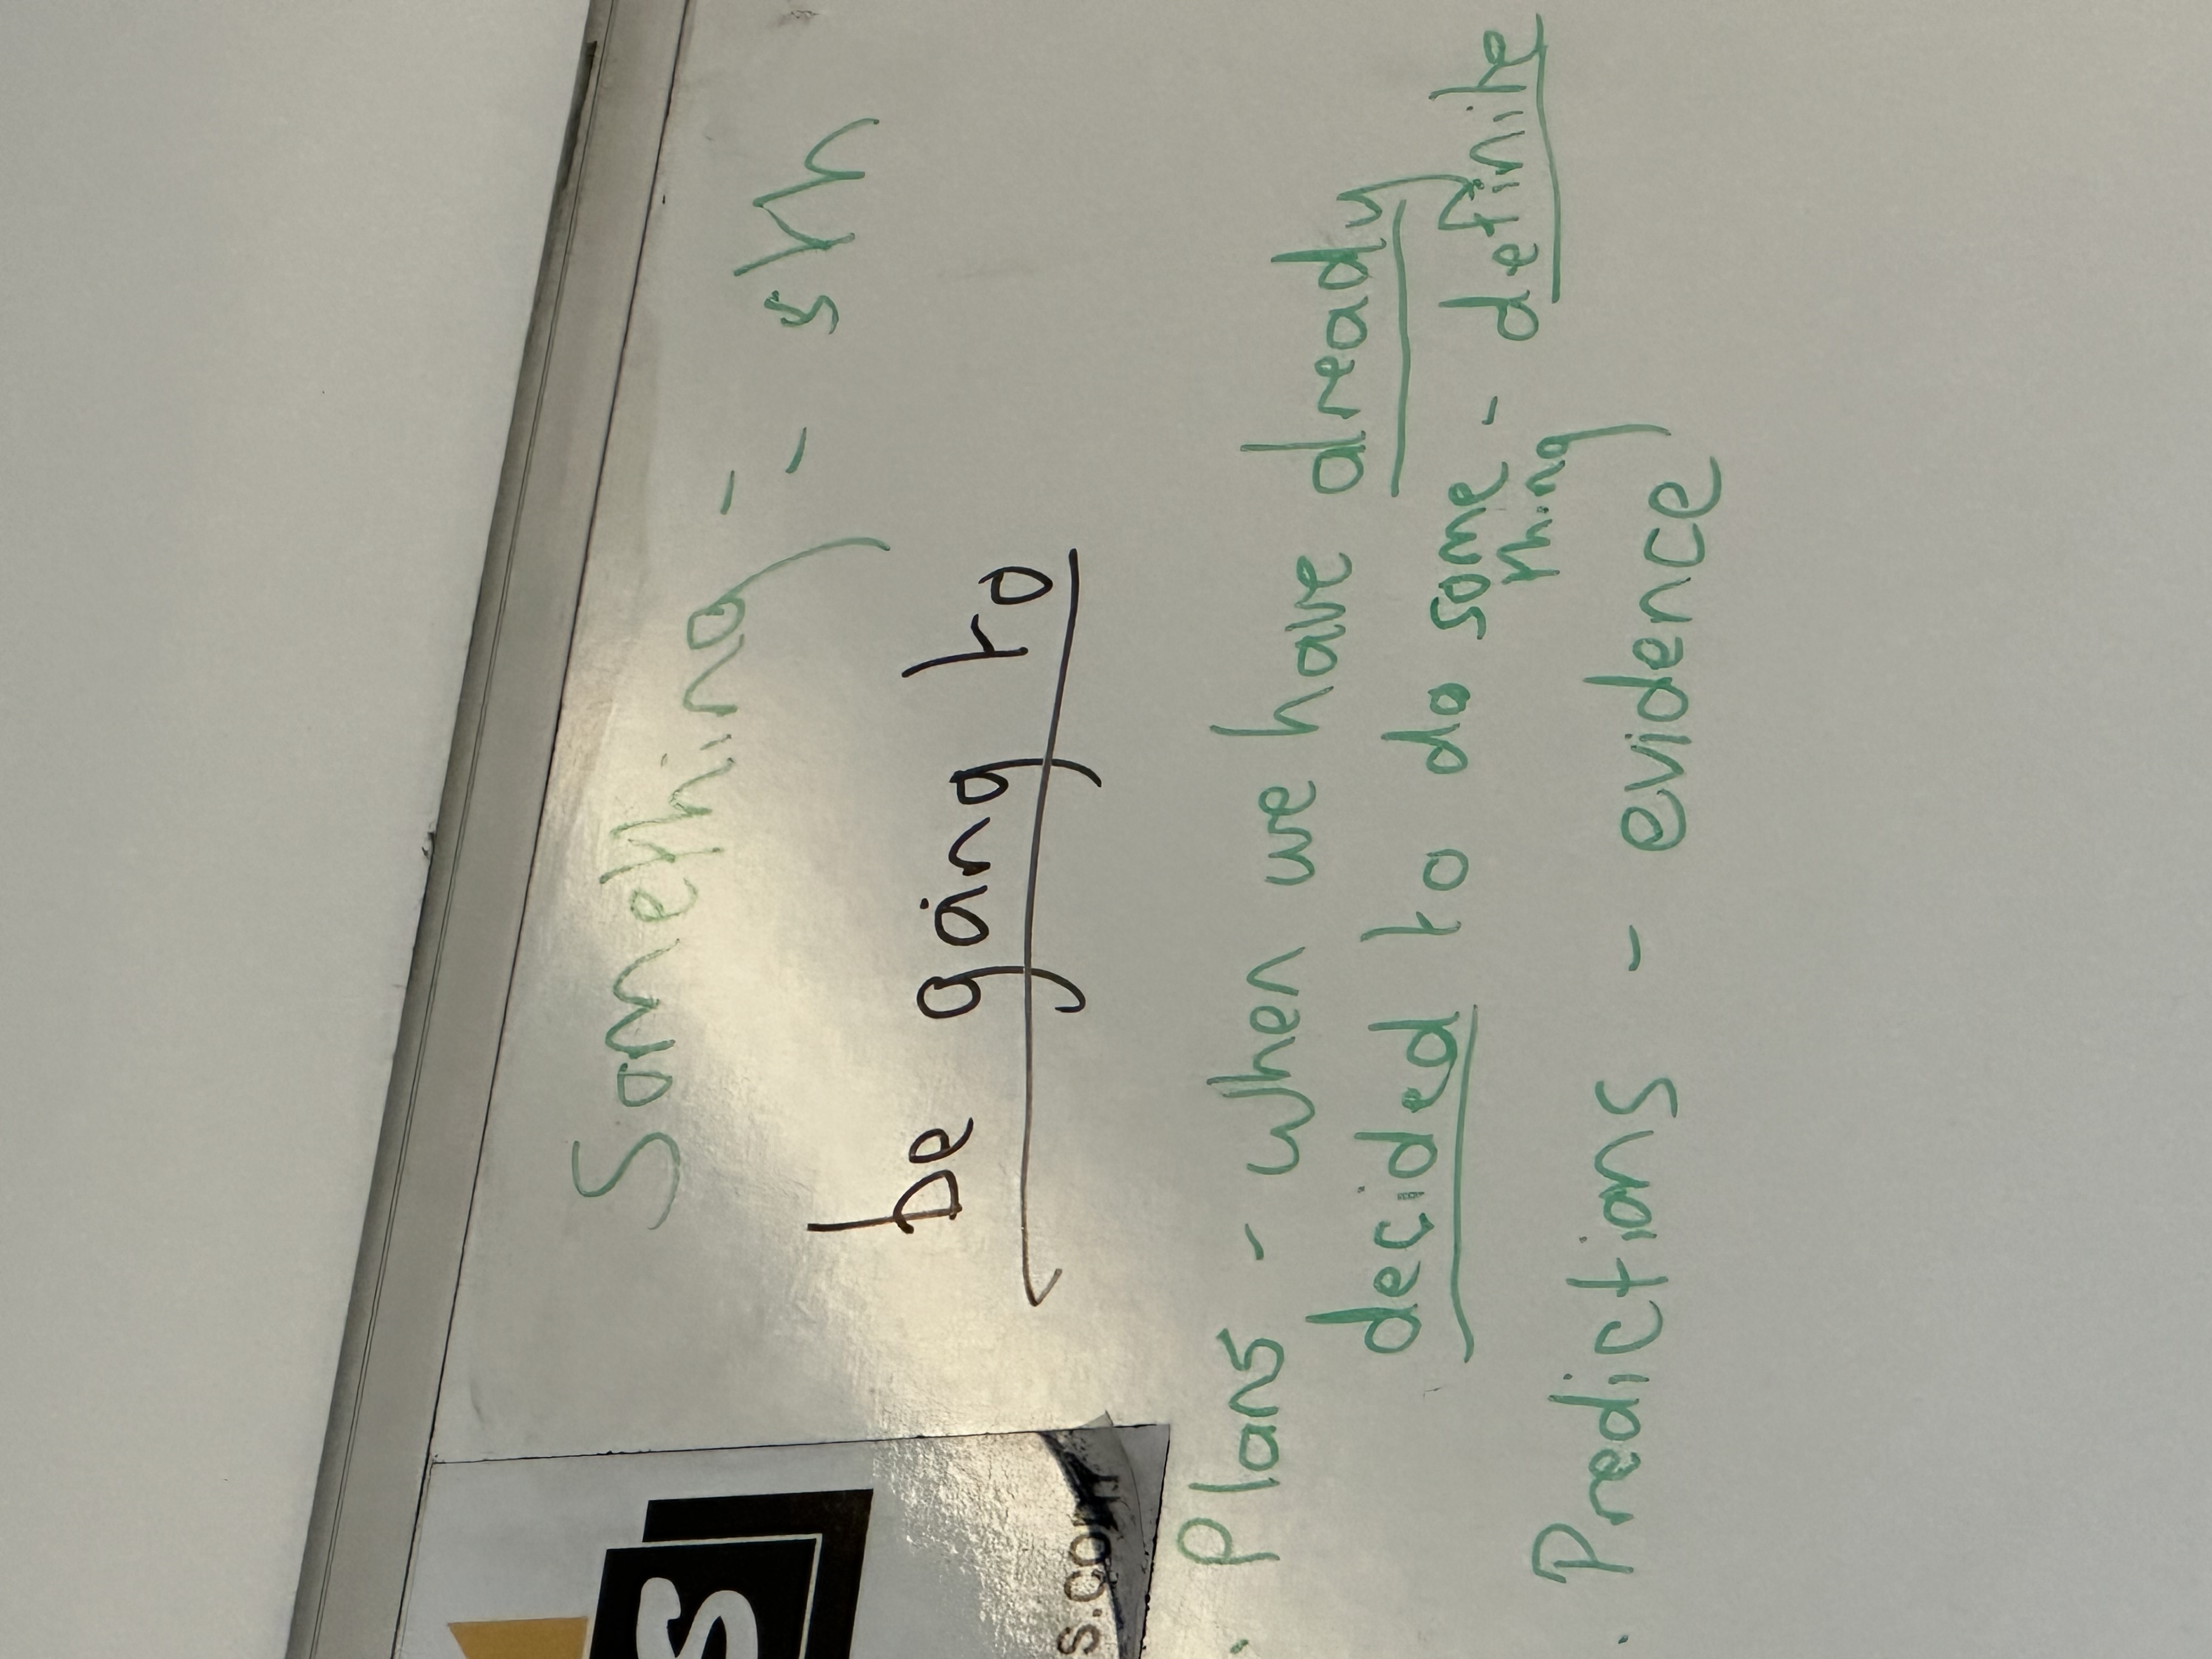 Something - - sth
be going to
S
s.com
. Plans - when we have already
decided to do some - definite
thing
. Predictions - evidence